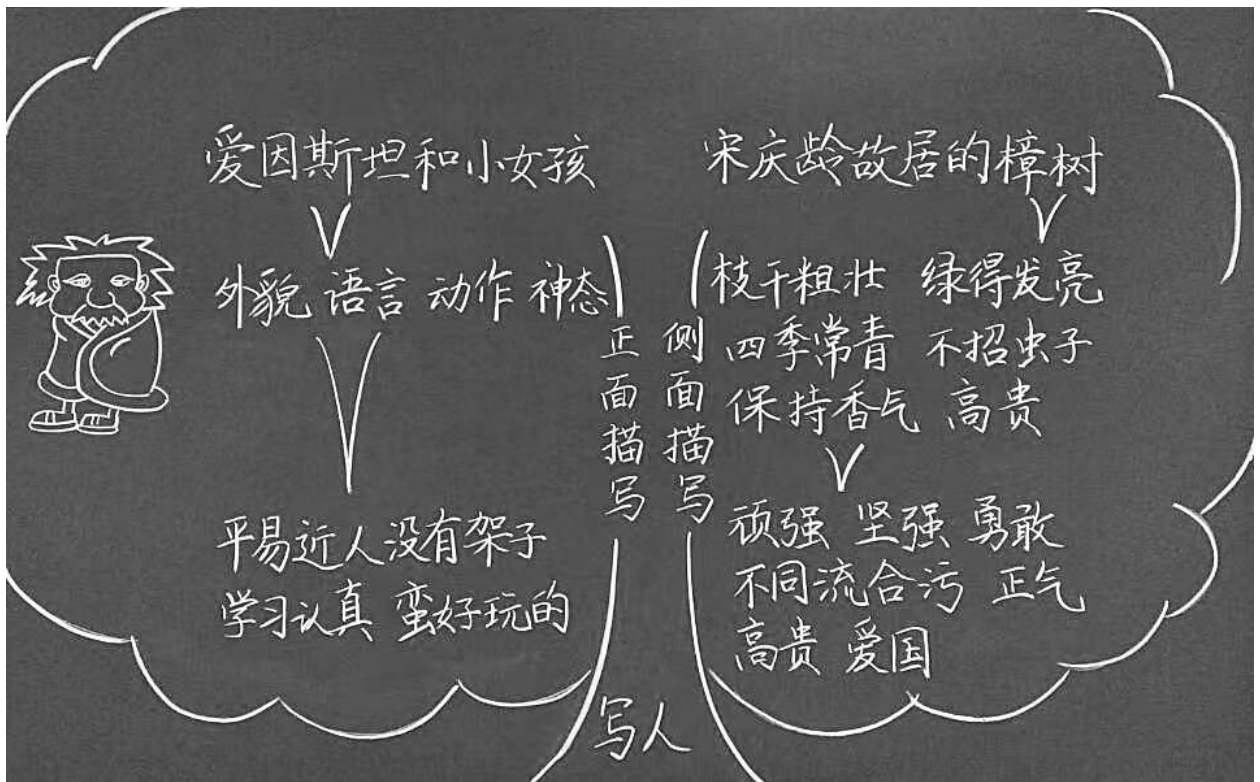 爱因斯坦和小女孩
外貌 语言 动作 神态
平易近人没有架子
学习认真 蛮好玩的
正面描写
侧面描写
宋庆龄故居的樟树
枝干粗壮 绿得发亮
四季常青 不招虫子
保持香气 高贵
顽强 坚强 勇敢
不同流合污 正气
高贵 爱国
写人